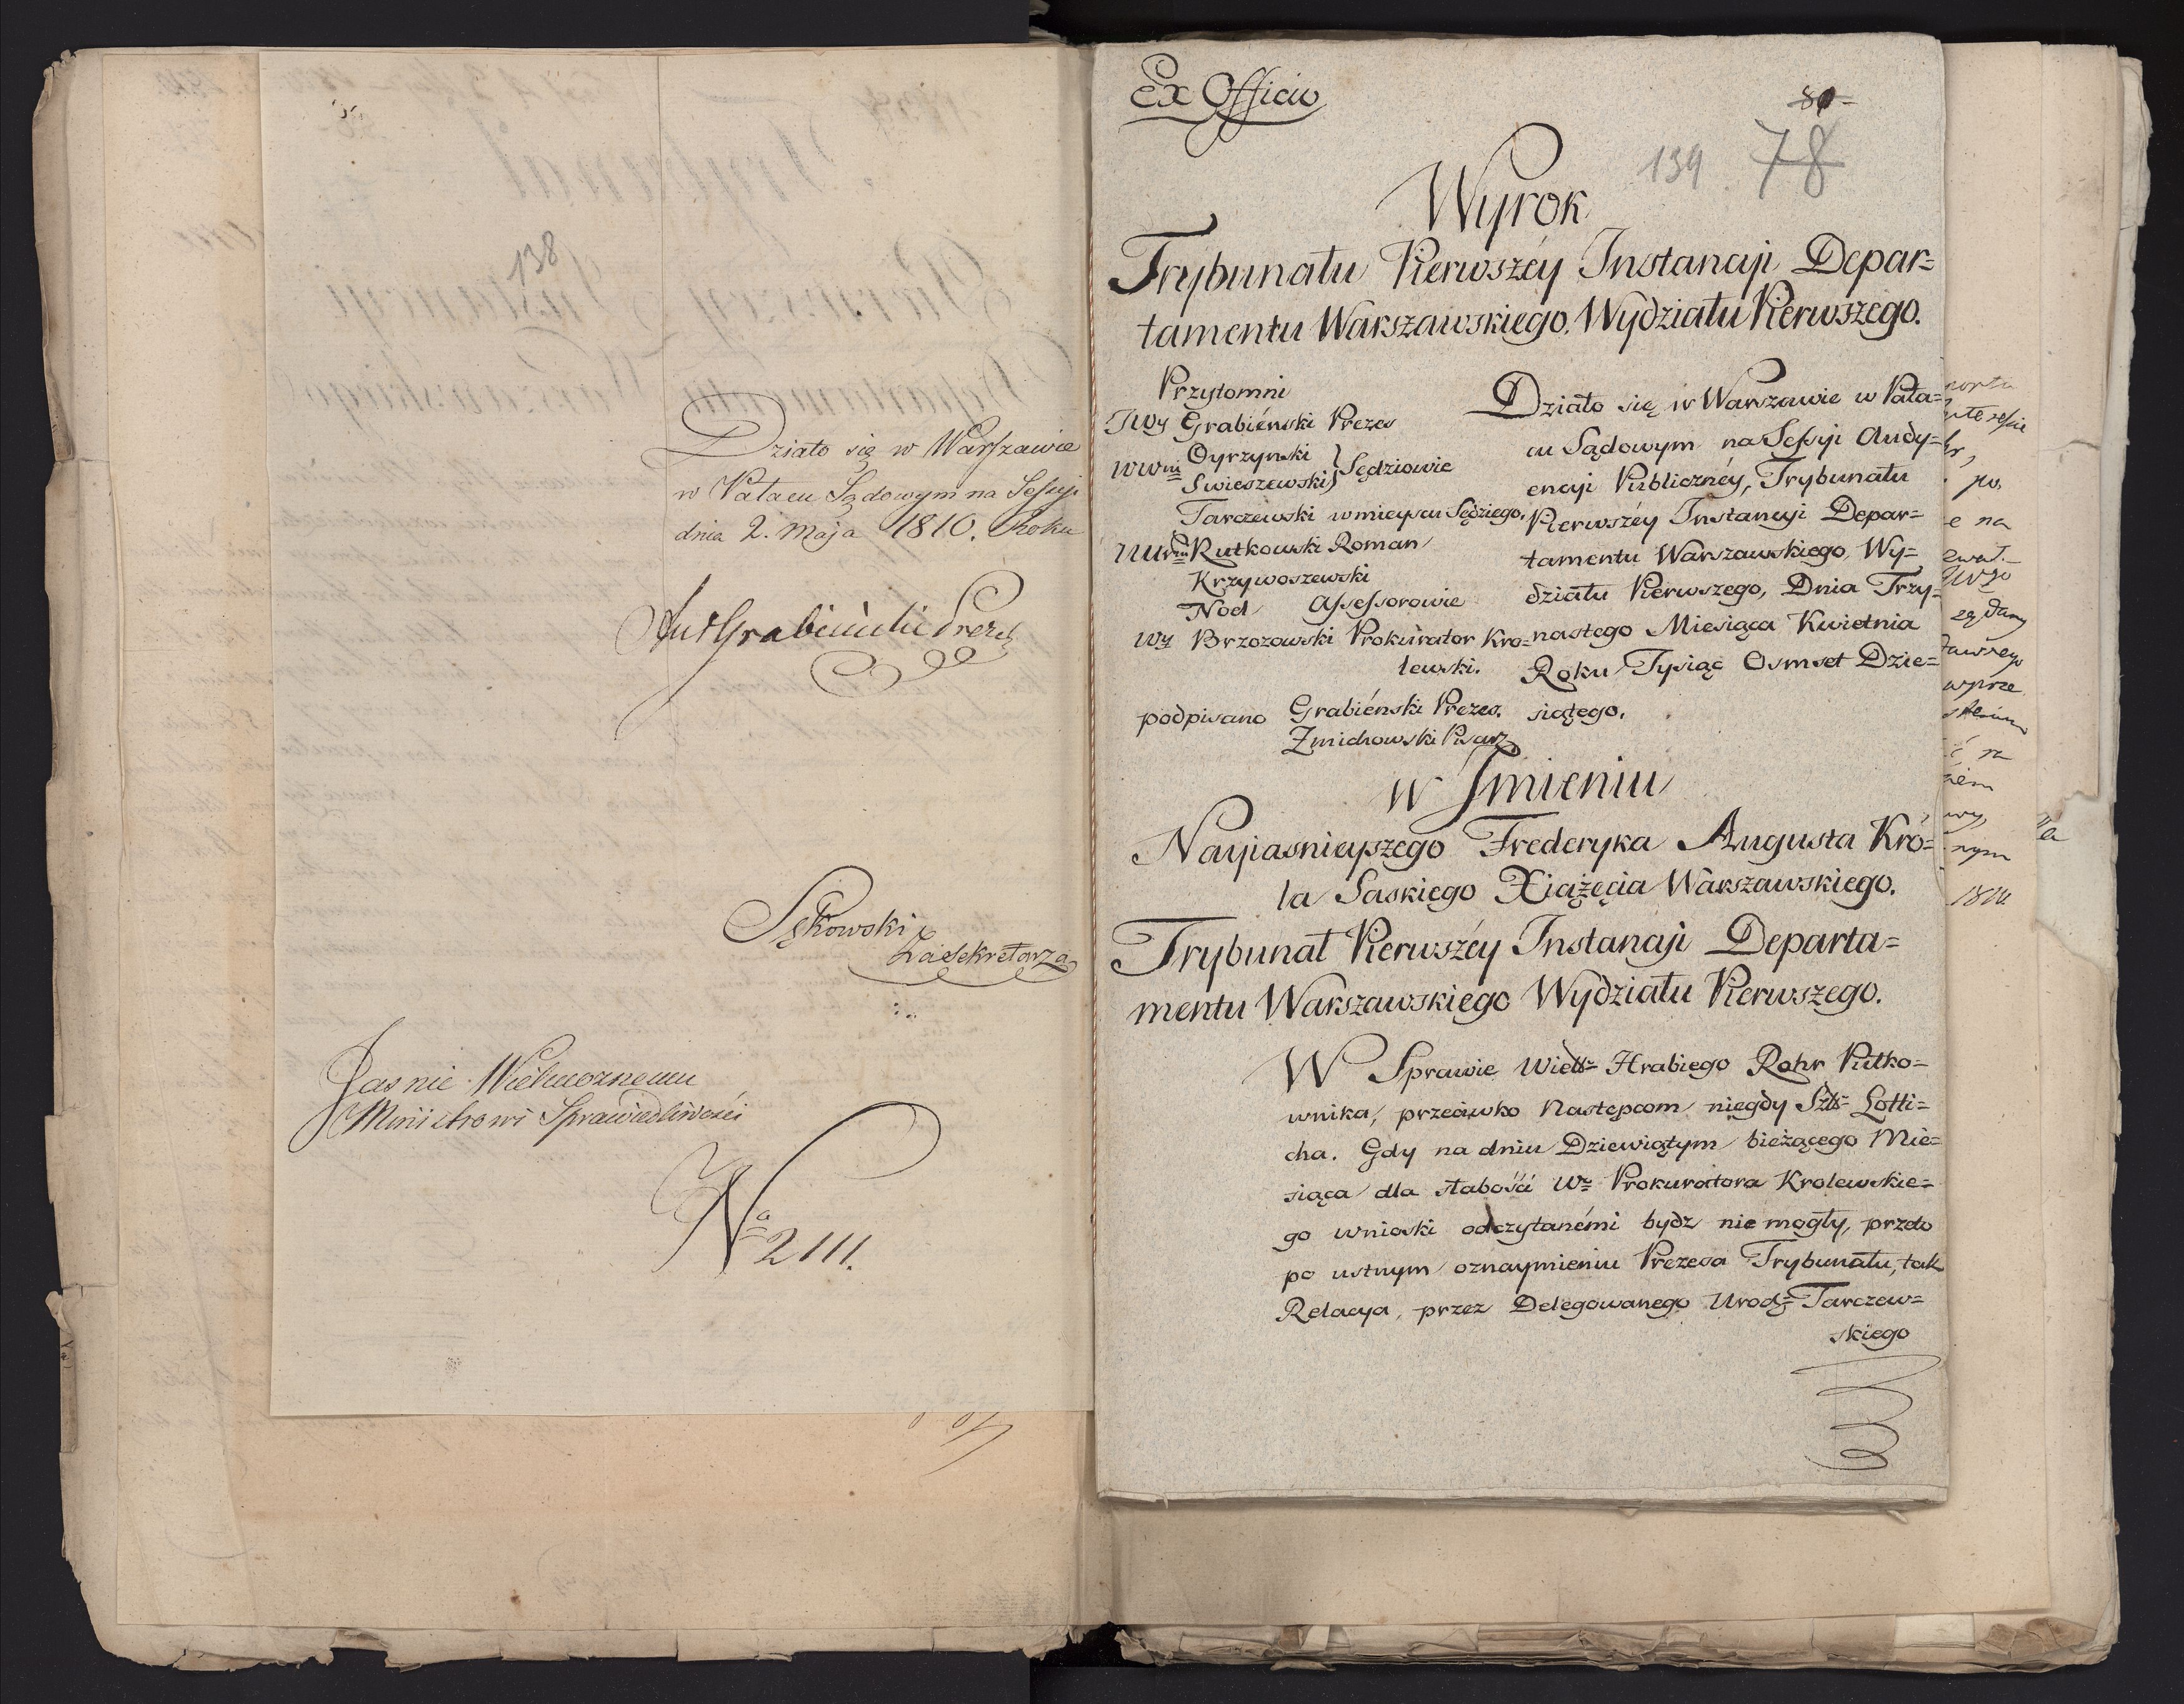 138
Działo się w Warszawie
w Pałacu Sądowym na Sessyi
dnia 2. Maja 1810. Roku
Ant Grabieński Prezes
Sękowski
Za Sekretarza
Jasnie Wielmoznemu
Ministrowi Sprawiedliwości
No 2111.
Ex Officio
80
139 78
Wyrok
Trybunału Pierwszéy Instancji Depar=
tamentu Warszawskiego. Wydziału Pierwszego.
Przytomni
JWy Grabiénski Prezes
WWni Oyrzynski
Swieszewski } Sędziowie
Tarczewski w mieyscu Sędziego.
Rutkowski Roman
Krzywoszewski
Nod Assessorowie
Wy Brzozowski Prokurator Kro=
lewski.
podpisano Grabiénski Prezes.
Zmichowski Pisarz
Działo się w Warszawie w Pała=
cu Sądowym na Sessyi Audy=
encyi Publicznéy, Trybunału
Pierwszéy Instancyi Depar=
tamentu Warszawskiego, Wy=
działu Pierwszego, Dnia Trzy=
nastego Miesiąca Kwietnia
Roku Tysiąc Osmset Dzie=
siątego.
w Jmieniu
Nayiasnieyszego Frederyka Augusta Kró=
la Saskiego Xiążęcia Warszawskiego.
Trybunał Pierwszéy Instancji Departa=
mentu Warszawskiego Wydziału Pierwszego.
W Sprawie Wielb= Hrabiego Rohr Pułko=
wnika, przeciwko Nastepcom niegdy Szl= Lotti=
cha. Gdy na dniu Dziewiątym bieżącego Mie=
siąca dla słabości W= Prokuratora Krolewskie=
go wnioski odczytanémi bydz nie mogły, przeto
po ustnym oznaymieniu Prezesa Trybunału, tak
Relacya, przez Delegowanego Urodz= Tarczew=
skiego
po
e na
nym
1810.